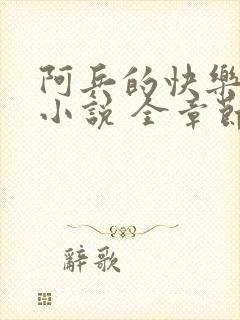 阿兵的快樂
小說 全章節
辭歌